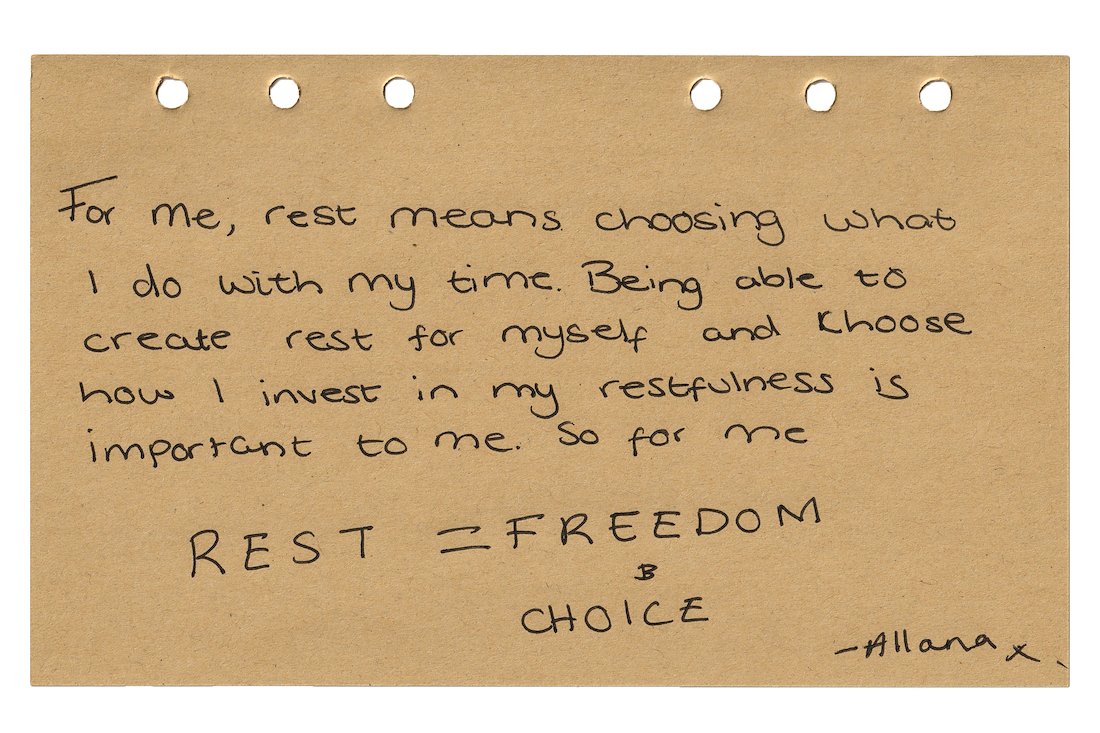 For me, rest means choosing what
I do with my time. Being able to
create rest for myself and choose
how I invest in my restfulness is
important to me. So for me
REST = FREEDOM
&
CHOICE
-Allana x.